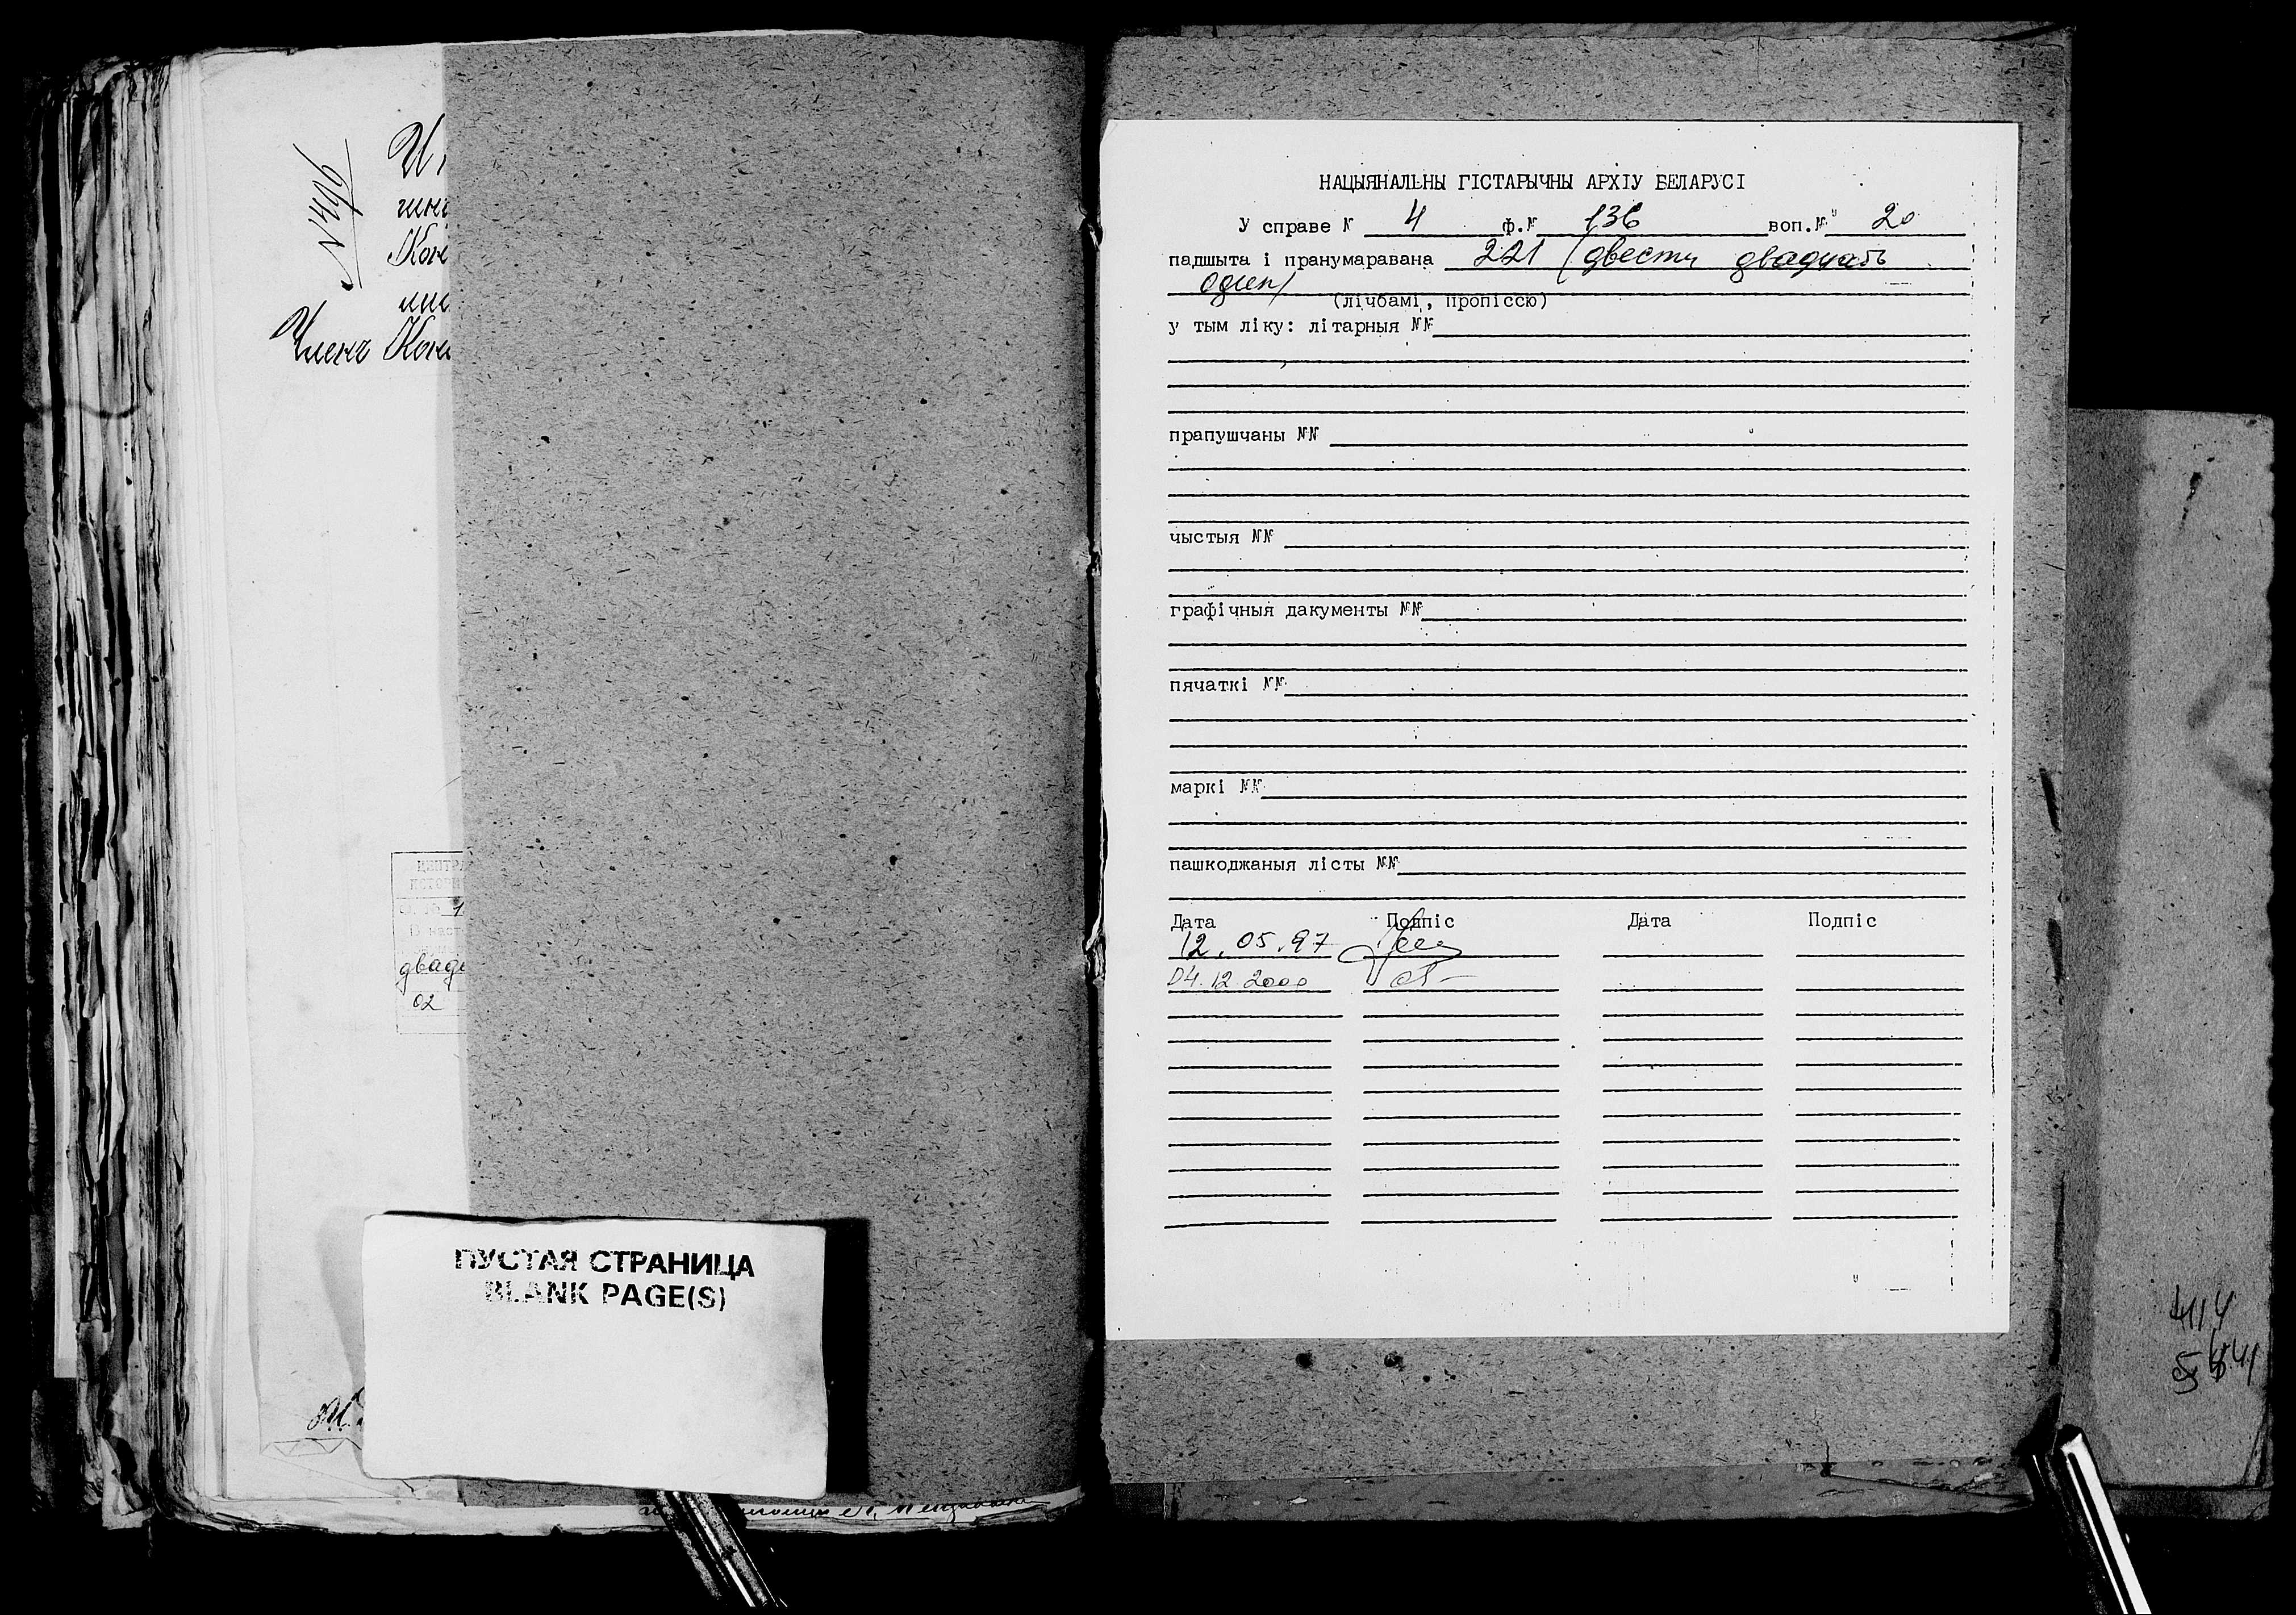 Членъ
двад
02
ПУСТАЯ СТРАНИЦА
BLANK PAGE(S)
НАЦЫЯНАЛЬНЫ ГІСТАРЫЧНЫ АРХІУ БЕЛАРУСІ
У справе № 4 ф.№ 136 воп.№ 20
падшыта і пранумаравана 221 (двести двадцать
один)
(лічбамі, пропіссю)
у тым ліку: літарныя №№
прапушчаны №№
чыстыя №№
графічныя дакументы №№
пячаткі №№
маркі №№
пашкоджаныя лісты №№
Дата Подпіс Дата Подпіс
12.05.97
04.12.2000